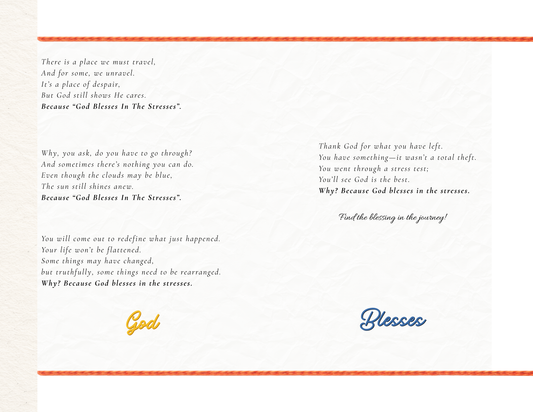 There is a place we must travel,
And for some, we unravel.
It's a place of despair,
But God still shows He cares.
Because “God Blesses In The Stresses”.
Why, you ask, do you have to go through?
And sometimes there's nothing you can do.
Even though the clouds may be blue,
The sun still shines anew.
Because “God Blesses In The Stresses”.
You will come out to redefine what just happened.
Your life won't be flattened.
Some things may have changed,
but truthfully, some things need to be rearranged.
Why? Because God blesses in the stresses.
God
Thank God for what you have left.
You have something—it wasn't a total theft.
You went through a stress test;
You'll see God is the best.
Why? Because God blesses in the stresses.
Find the blessing in the journey!
Blesses